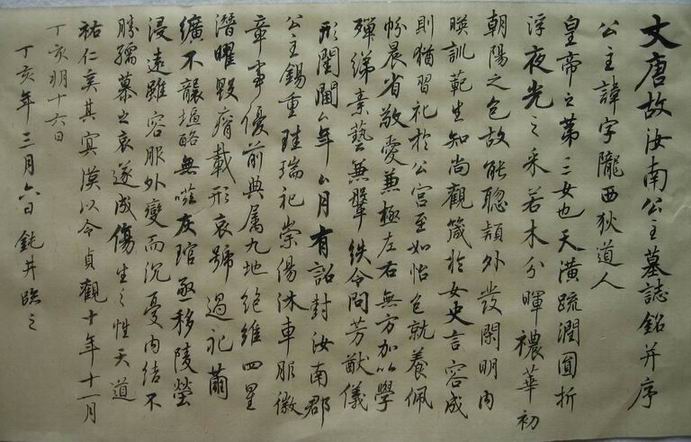 大唐故汝南公主墓誌銘并序
公主諱字隴西狄道人
皇帝之第三女也天潢疏潤圓折
浮夜光之采若木分暉穠華初
朝陽之色故能聡穎外發閑明内
暎訓範生知尚觀箴於女史言容成
則猶習礼於公宮至如怡色就養佩
帉晨省敬愛兼極左右無方加以學
殫綈素藝兼鞶紩令問芳猷儀
形閨閫厶年厶月有詔封汝南郡
公主錫重珪瑞礼崇湯沐車服徽
章事優前典属九地絶維四星
潛曜毀瘠載形哀號過礼繭
纊不襲塩酪無嗞灰琯亟移陵塋
浸遠雖容服外變而沉憂内結不
勝孺慕之哀遂成傷生之性天道
祐仁奚其冥漠以今貞觀十年十一月
丁亥朔十六日
丁亥年三月六日 鈍井臨之